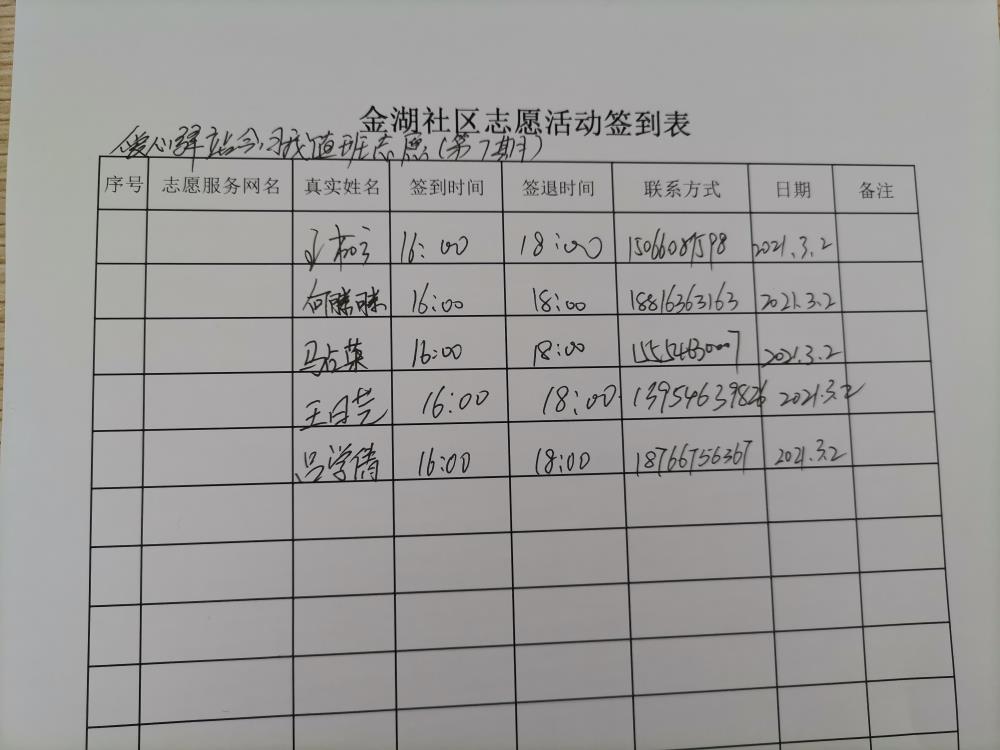 金湖社区志愿活动签到表
爱心驿站今日我值班志愿(第7期)
序号 志愿服务网名 真实姓名 签到时间 签退时间 联系方式 日期 备注
16:00 18:00 15066087598 2021.3.2
何睐睐 16:00 18:00 18816363163 2021.3.2
马占英 16:00 18:00 2021.3.2
王日芸 16:00 18:00 13954639826 2021.3.2
吕学倩 16:00 18:00 18766756367 2021.3.2